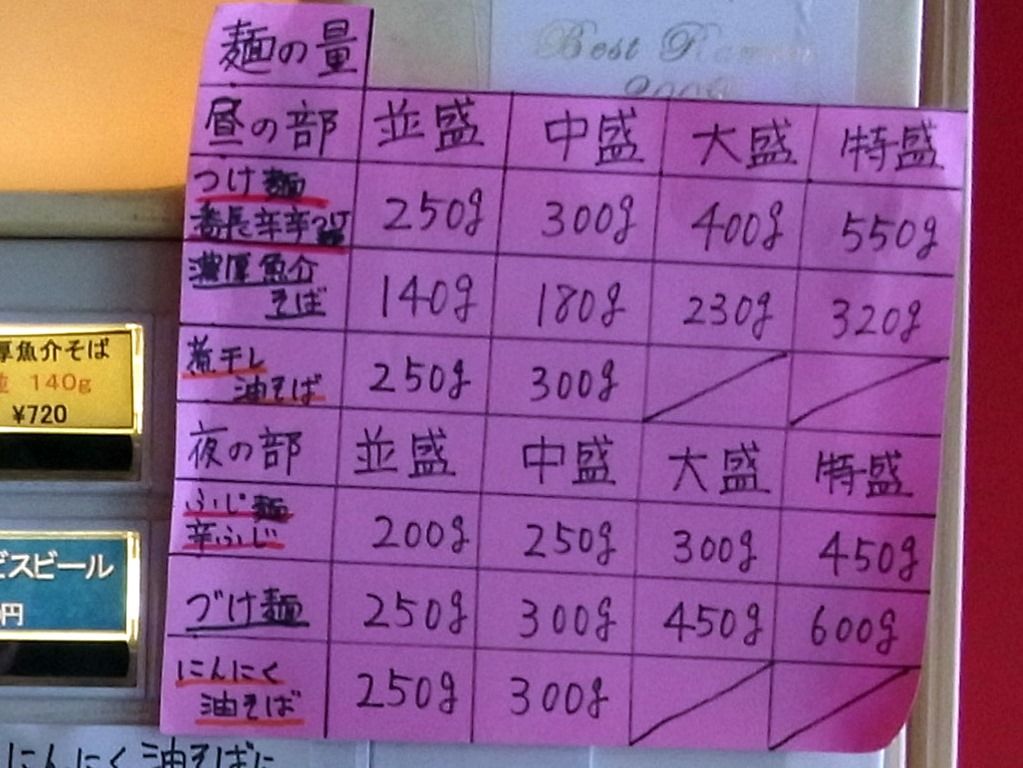 Best Ramen
2008
麺の量
昼の部 並盛 中盛 大盛 特盛
つけ麺
番長辛辛つけ 250g 300g 400g 550g
濃厚魚介
そば 140g 180g 230g 320g
煮干し
油そば 250g 300g
夜の部 並盛 中盛 大盛 特盛
ふじ麺
辛ふじ 200g 250g 300g 450g
づけ麺 250g 300g 450g 600g
にんにく
油そば 250g 300g
厚魚介そば
並 140g
¥720
ビスビール
円
にんにく油そばに